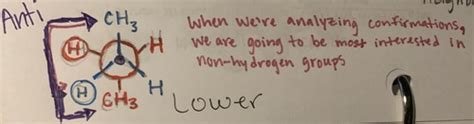 Anti
CH3
H H
H H
CH3
When we're analyzing confirmations,
we are going to be most interested in
non-hydrogen groups
Lower